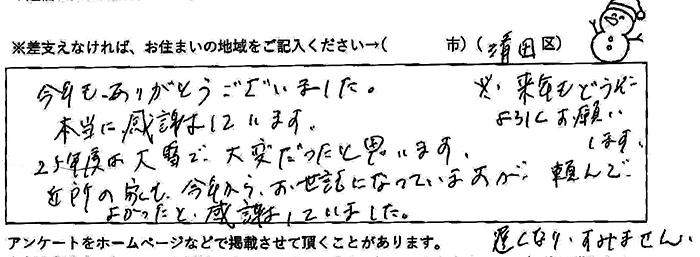 ※差支えなければ、お住まいの地域をご記入ください→(　　　市)(清田区)
今年も、ありがとうございました。
本当に感謝しています。
25年度は大雪で、大変だったと思います。
近所の家も、今年から、お世話になっていますが、頼んで
よかったと、感謝していました。
※来年もどうぞ
よろしくお願い
します。
アンケートをホームページなどで掲載させて頂くことがあります。
遅くなり、すみません。